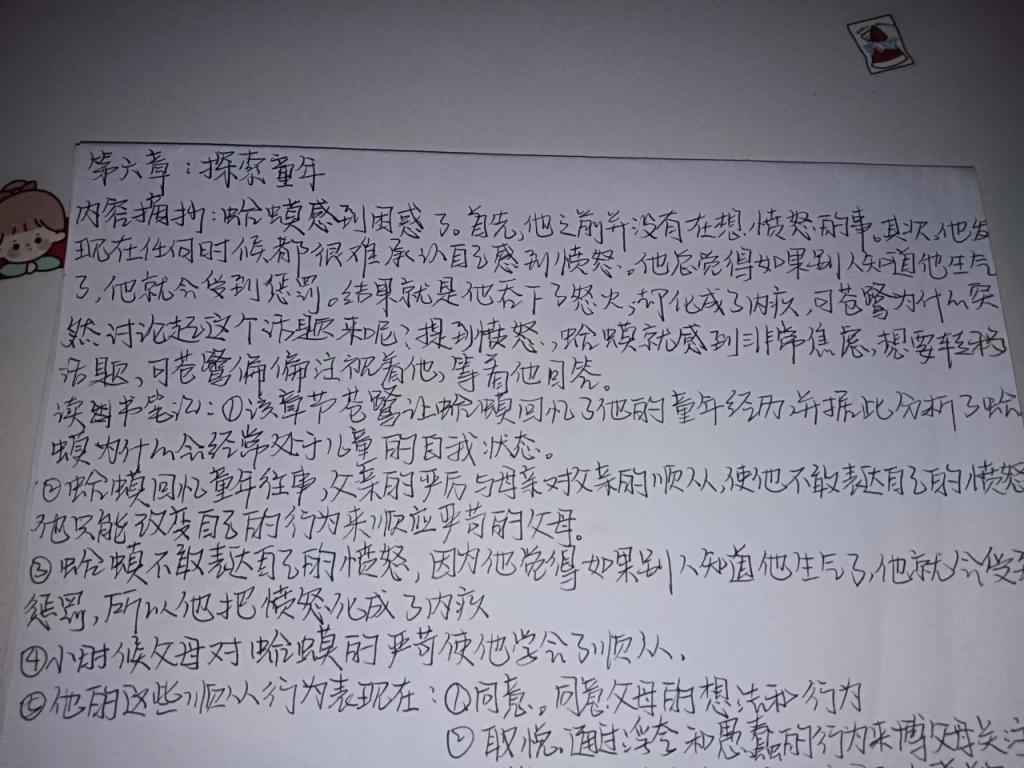 第六章：探索童年
内容摘抄：蛤蟆感到困惑了。首先，他之前并没有在想愤怒的事。其次，他发
现在任何时候都很难承认自己感到愤怒。他总觉得如果别人知道他生气
了，他就会受到惩罚。结果就是他吞下了怒火，却化成了内疚，可苍鹭为什么突
然讨论起这个话题来呢？提到愤怒，蛤蟆就感到非常焦虑，想要轻移
话题，可苍鹭偏偏注视着他，等着他回答。
读书笔记：①该章节苍鹭让蛤蟆回忆了他的童年经历，并据此分析了蛤
蟆为什么会经常处于儿童的自我状态。
②蛤蟆回忆童年往事，父亲的严厉与母亲对父亲的顺从，使他不敢表达自己的愤怒
他只能改变自己的行为来顺应严苛的父母。
③蛤蟆不敢表达自己的愤怒，因为他觉得如果别人知道他生气了，他就会受到
惩罚，所以他把愤怒化成了内疚
④小时候父母对蛤蟆的严苛使他学会了顺从。
⑤他的这些顺从行为表现在：①同意。同意父母的想法和行为
②取悦。通过浮夸和愚蠢的行为来博父母关注